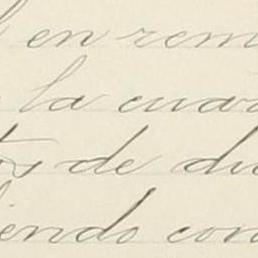 en rem
la cuar
os de du
iendo con